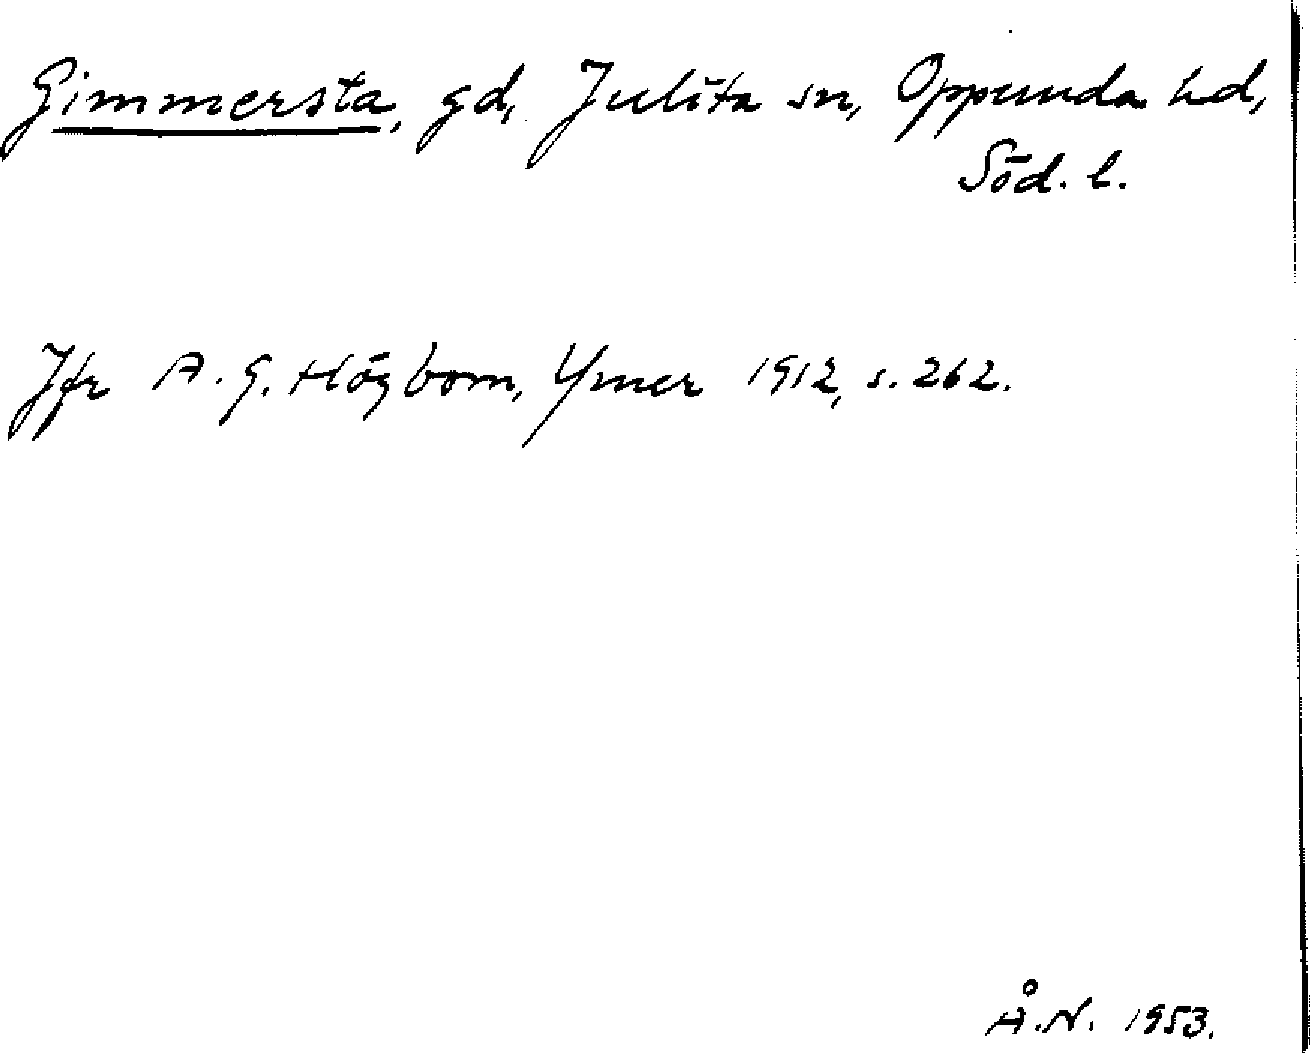 Gimmersta, gd, Julita sn, Oppunda hd,
Söd. l.
Jfr A. G. Högbom, Ymer 1912, s. 262.
Å.N. 1953.